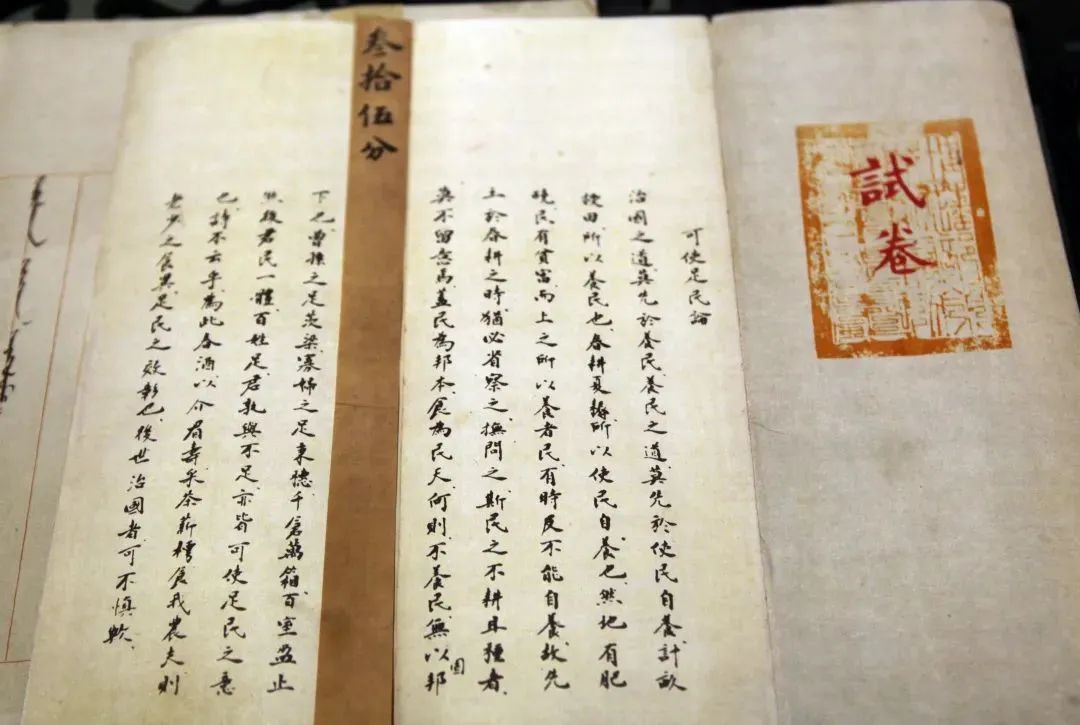 試卷
可使足民論
治國之道莫先於養民養民之道莫先於使民自養計畝
授田所以養民也春耕夏耨所以使民自養也然地有肥
磽民有貧富而上之所以養者民有時反不能自養故先
王於春耕之時猶必省察之撫問之斯民之不耕且種者
莫不留意焉蓋民為邦本食為民天何則不養民無以固邦
叁拾伍分
下也曾孫之足茨梁寡婦之足秉穗千倉萬箱百室盈止
然後君民一體百姓足君孰與不足亦皆可使足民之意
已詩不云乎為此春酒以介眉壽采荼薪樗食我農夫則
老少之食異足民之效彰已後世治國者可不慎歟